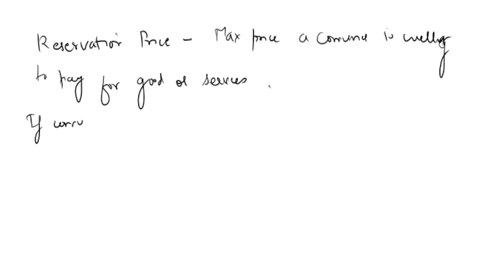 Reservation Price - Max price a consumer is willing
to pay for good or services .
If consu